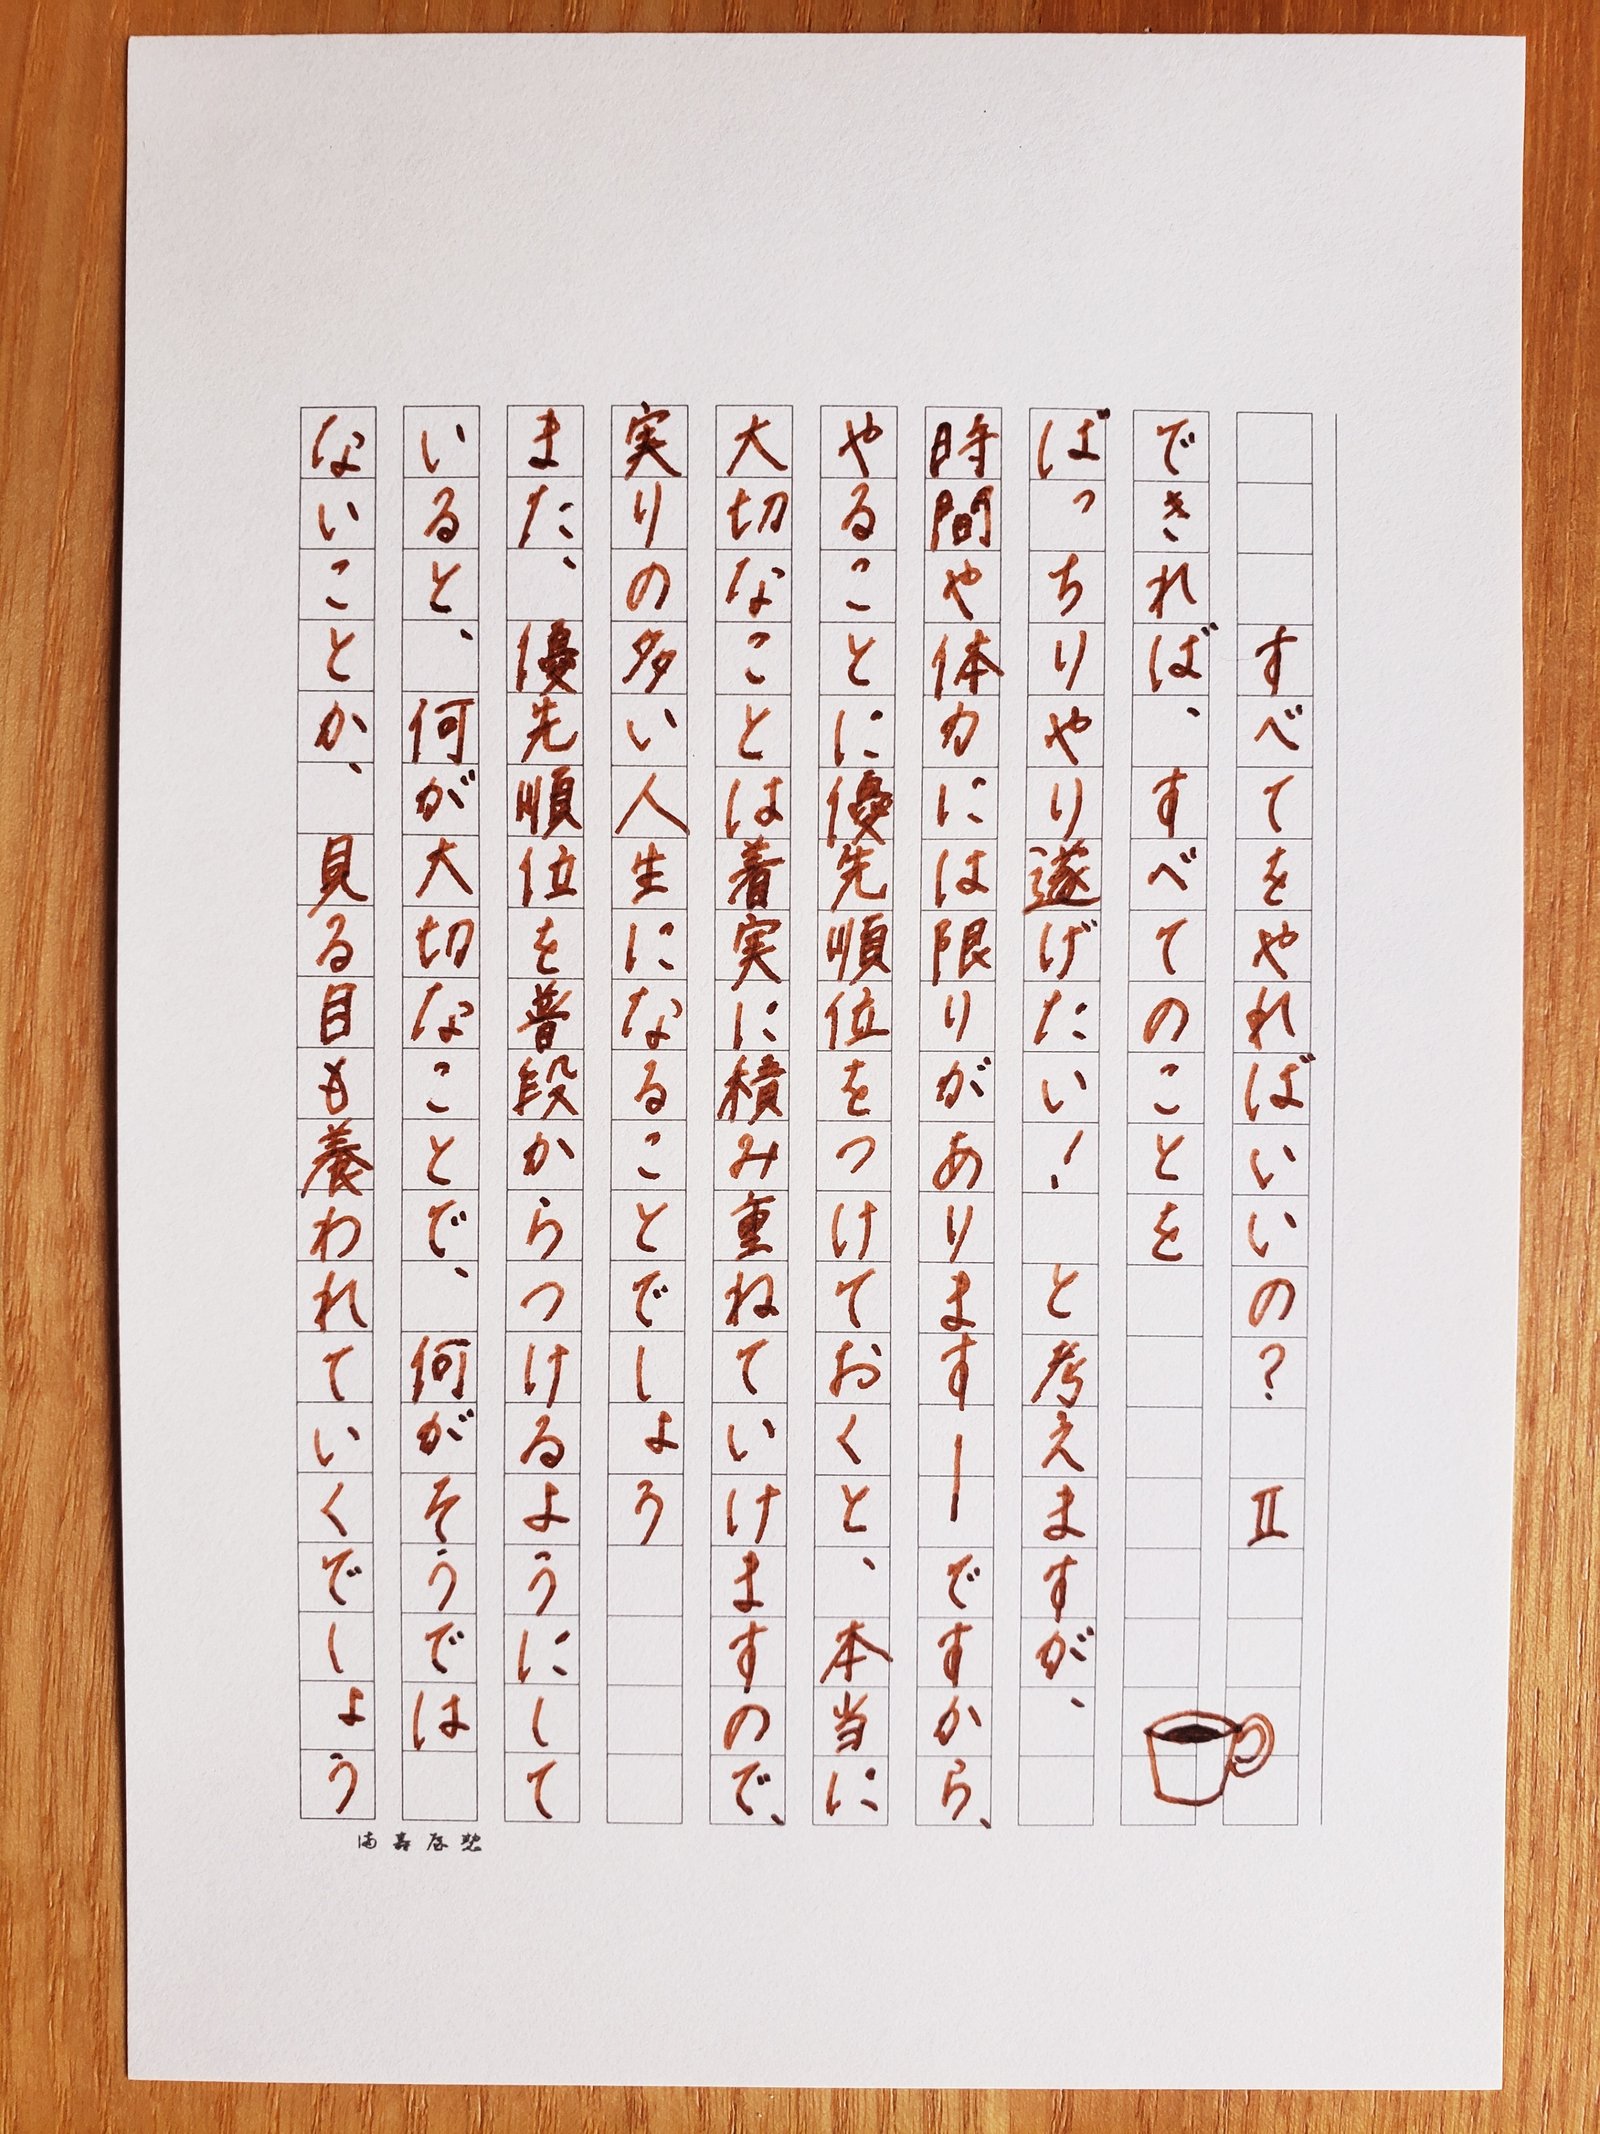 すべてをやればいいの？ Ⅱ
できれば、すべてのことを
ばっちりやり遂げたい！ と考えますが、
時間や体力には限りがありますーですから、
やることに優先順位をつけておくと、本当に
大切なことは着実に積み重ねていけますので、
実りの多い人生になることでしょう
また、優先順位を普段からつけるようにして
いると、何が大切なことで、何がそうでは
ないことか、見る目も養われていくでしょう